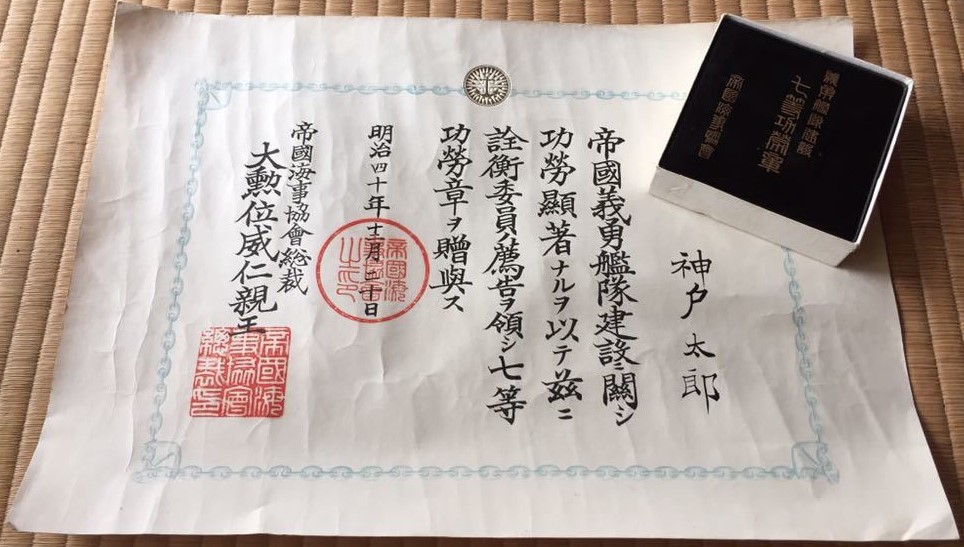 神戸太郎
帝國義勇艦隊建設ニ關シ
功勞顯著ナルヲ以テ茲ニ
詮衡委員ノ薦告ヲ領シ七等
功勞章ヲ贈與ス
明治四十年十二月二十日
帝國海事協會総裁
大勲位威仁親王
帝國海
事協會
之印
帝國海
事協會
總裁印
七等功勞章
帝國海事協會